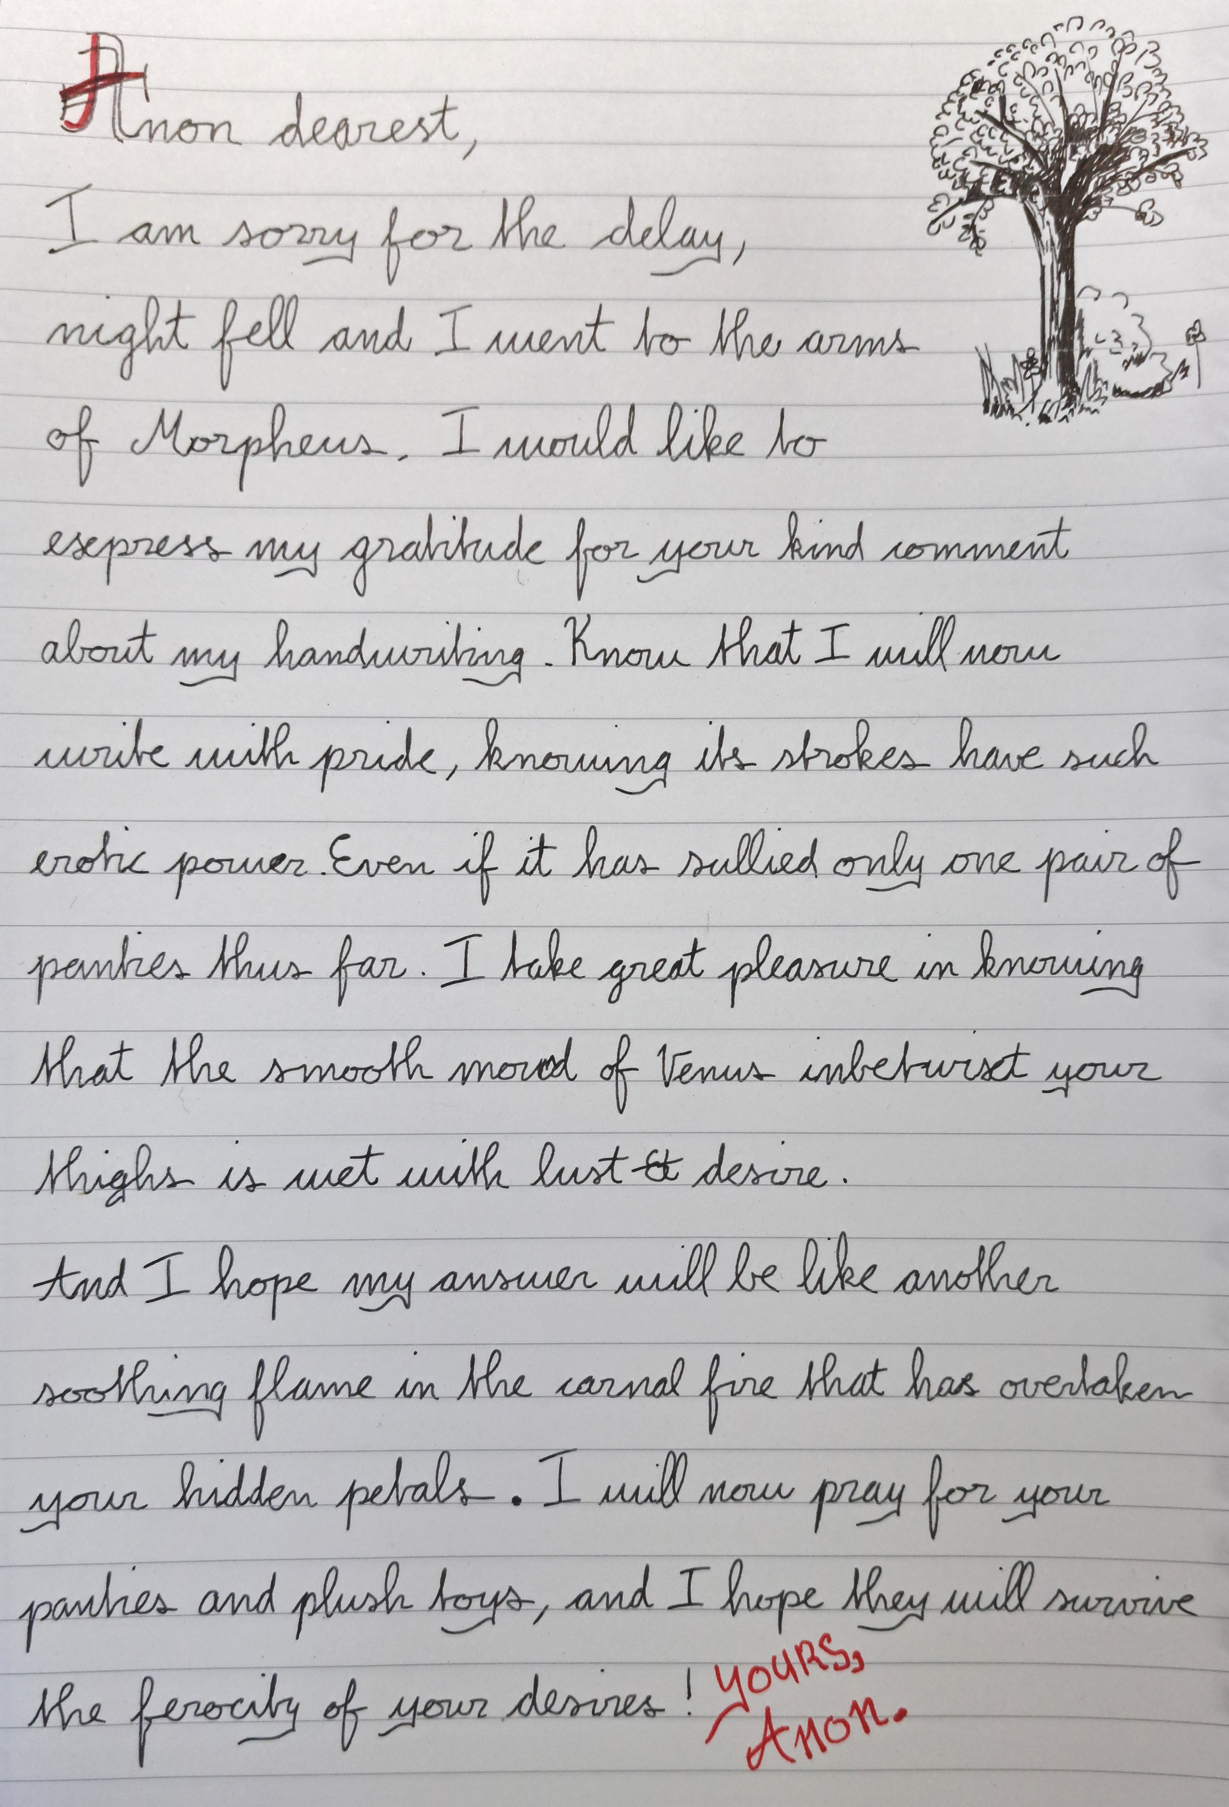 Anon dearest,
I am sorry for the delay,
night fell and I went to the arms
of Morpheus. I would like to
express my gratitude for your kind comment
about my handwriting. Know that I will now
write with pride, knowing its strokes have such
erotic power. Even if it has sullied only one pair of
panties thus far. I take great pleasure in knowing
that the smooth mound of Venus inbetwixt your
thighs is wet with lust & desire.
And I hope my answer will be like another
soothing flame in the carnal fire that has overtaken
your hidden petals. I will now pray for your
panties and plush toys, and I hope they will survive
the ferocity of your desires!
YOURS,
Anon.